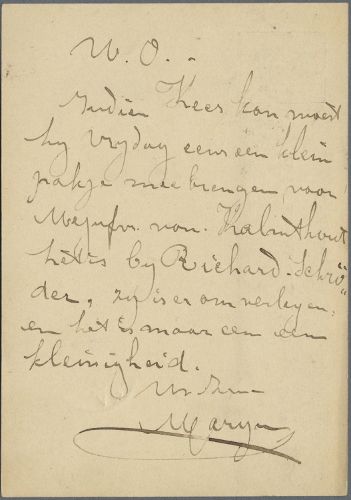 W. O. -
Indien Kees kan moest
hy Vrydag eens een klein
pakje meebrengen voor
Mejufvr. von. Kalmthout
het is by Richard. Schrö"
der, zy is er om verlegen.
en het is maar een een
kleinigheid.
Maryn